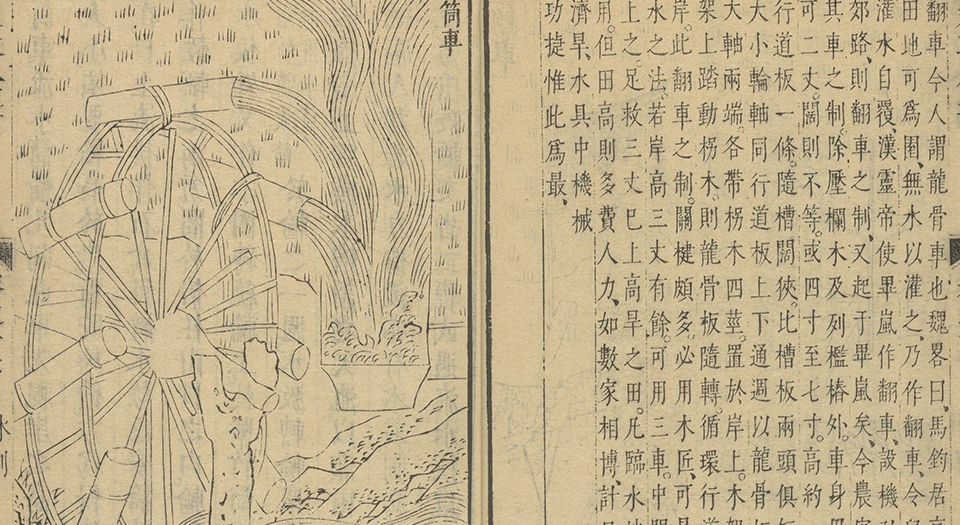 翻車今人謂龍骨車也魏畧曰馬鈞居
田地可爲園、無水以灌之、乃作翻車、令
灌水自覆、漢靈帝使畢嵐作翻車、設機
郊路、則翻車之制、又起于畢嵐矣、今農
其車之制、除壓欄木及列檻樁外。車身
可二丈。闊則不等。或四寸至七寸。高約
行道板一條。隨槽闊狹。比槽板兩頭俱
大小輪軸。同行道板上下通週以龍骨
大軸兩端。各帶拐木四莖。置於岸上。木
架上踏動拐木。則龍骨板隨轉。循環行道
岸。此翻車之制。關楗頗多。必用木匠、可
水之法。若岸高三丈有餘。可用三車。中
上之。足救三丈已上高旱之田。凡臨水
用。但田高則多費人力、如數家相博、計
濟旱、水具中機械
功捷惟此爲最、
筒車